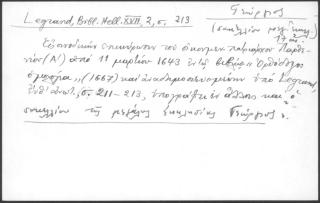 Legrand, Bibl. Hell. XVII, 2, σ. 213
Γεώργιος
(σακελλίου μεγ. ἐκκλ.
17 αἰ.
Ἐν συνοδικῇ ἐπικυρώσει τοῦ οἰκουμεν. πατριάρχου Παρθε-
νίου (Α') ἀπὸ 11 μαρτίου 1643 ἐν τῷ βιβλίῳ "Ὀρθόδοξος
ὁμολογία" (1667) καὶ ἀναδημοσιευομένῃ ὑπὸ Legrand,
ἔνθ' ἀνωτ., σ. 211-213, ὑπογράφει ἐν ἄλλοις καὶ "ὁ
σακελλίου τῆς μεγάλης ἐκκλησίας Γεώργιος".